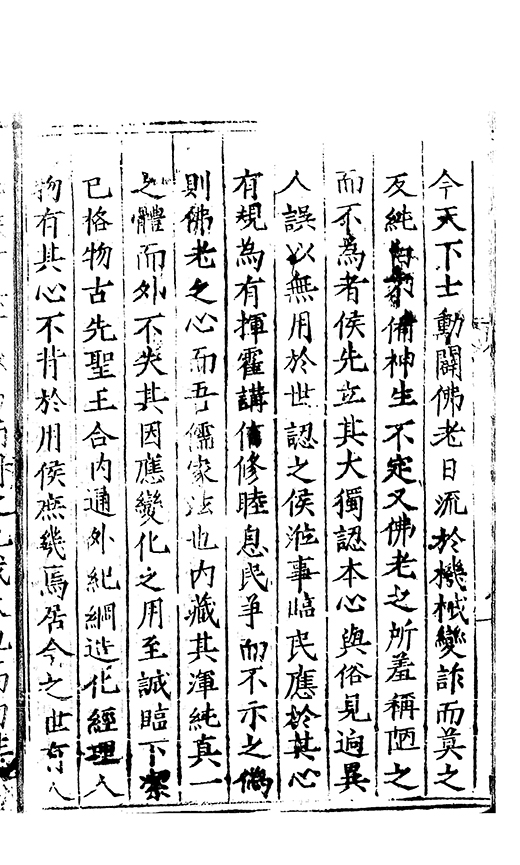 今天下士動闢佛老日流於機械變詐而莫之
反純白不備神生不定又佛老之所羞稱陋之
而不為者侯先立其大獨認本心與俗見逈異
人誤以無用於世認之侯涖事臨民應於其心
有規為有揮霍講信修睦息民爭而不示之僞
則佛老之心而吾儒家法也内藏其渾純真一
之體而外不失其因應變化之用至誠臨下潔
已格物古先聖王合内通外紀綱造化經理人
物有其心不背於用侯庶幾焉居今之世育人